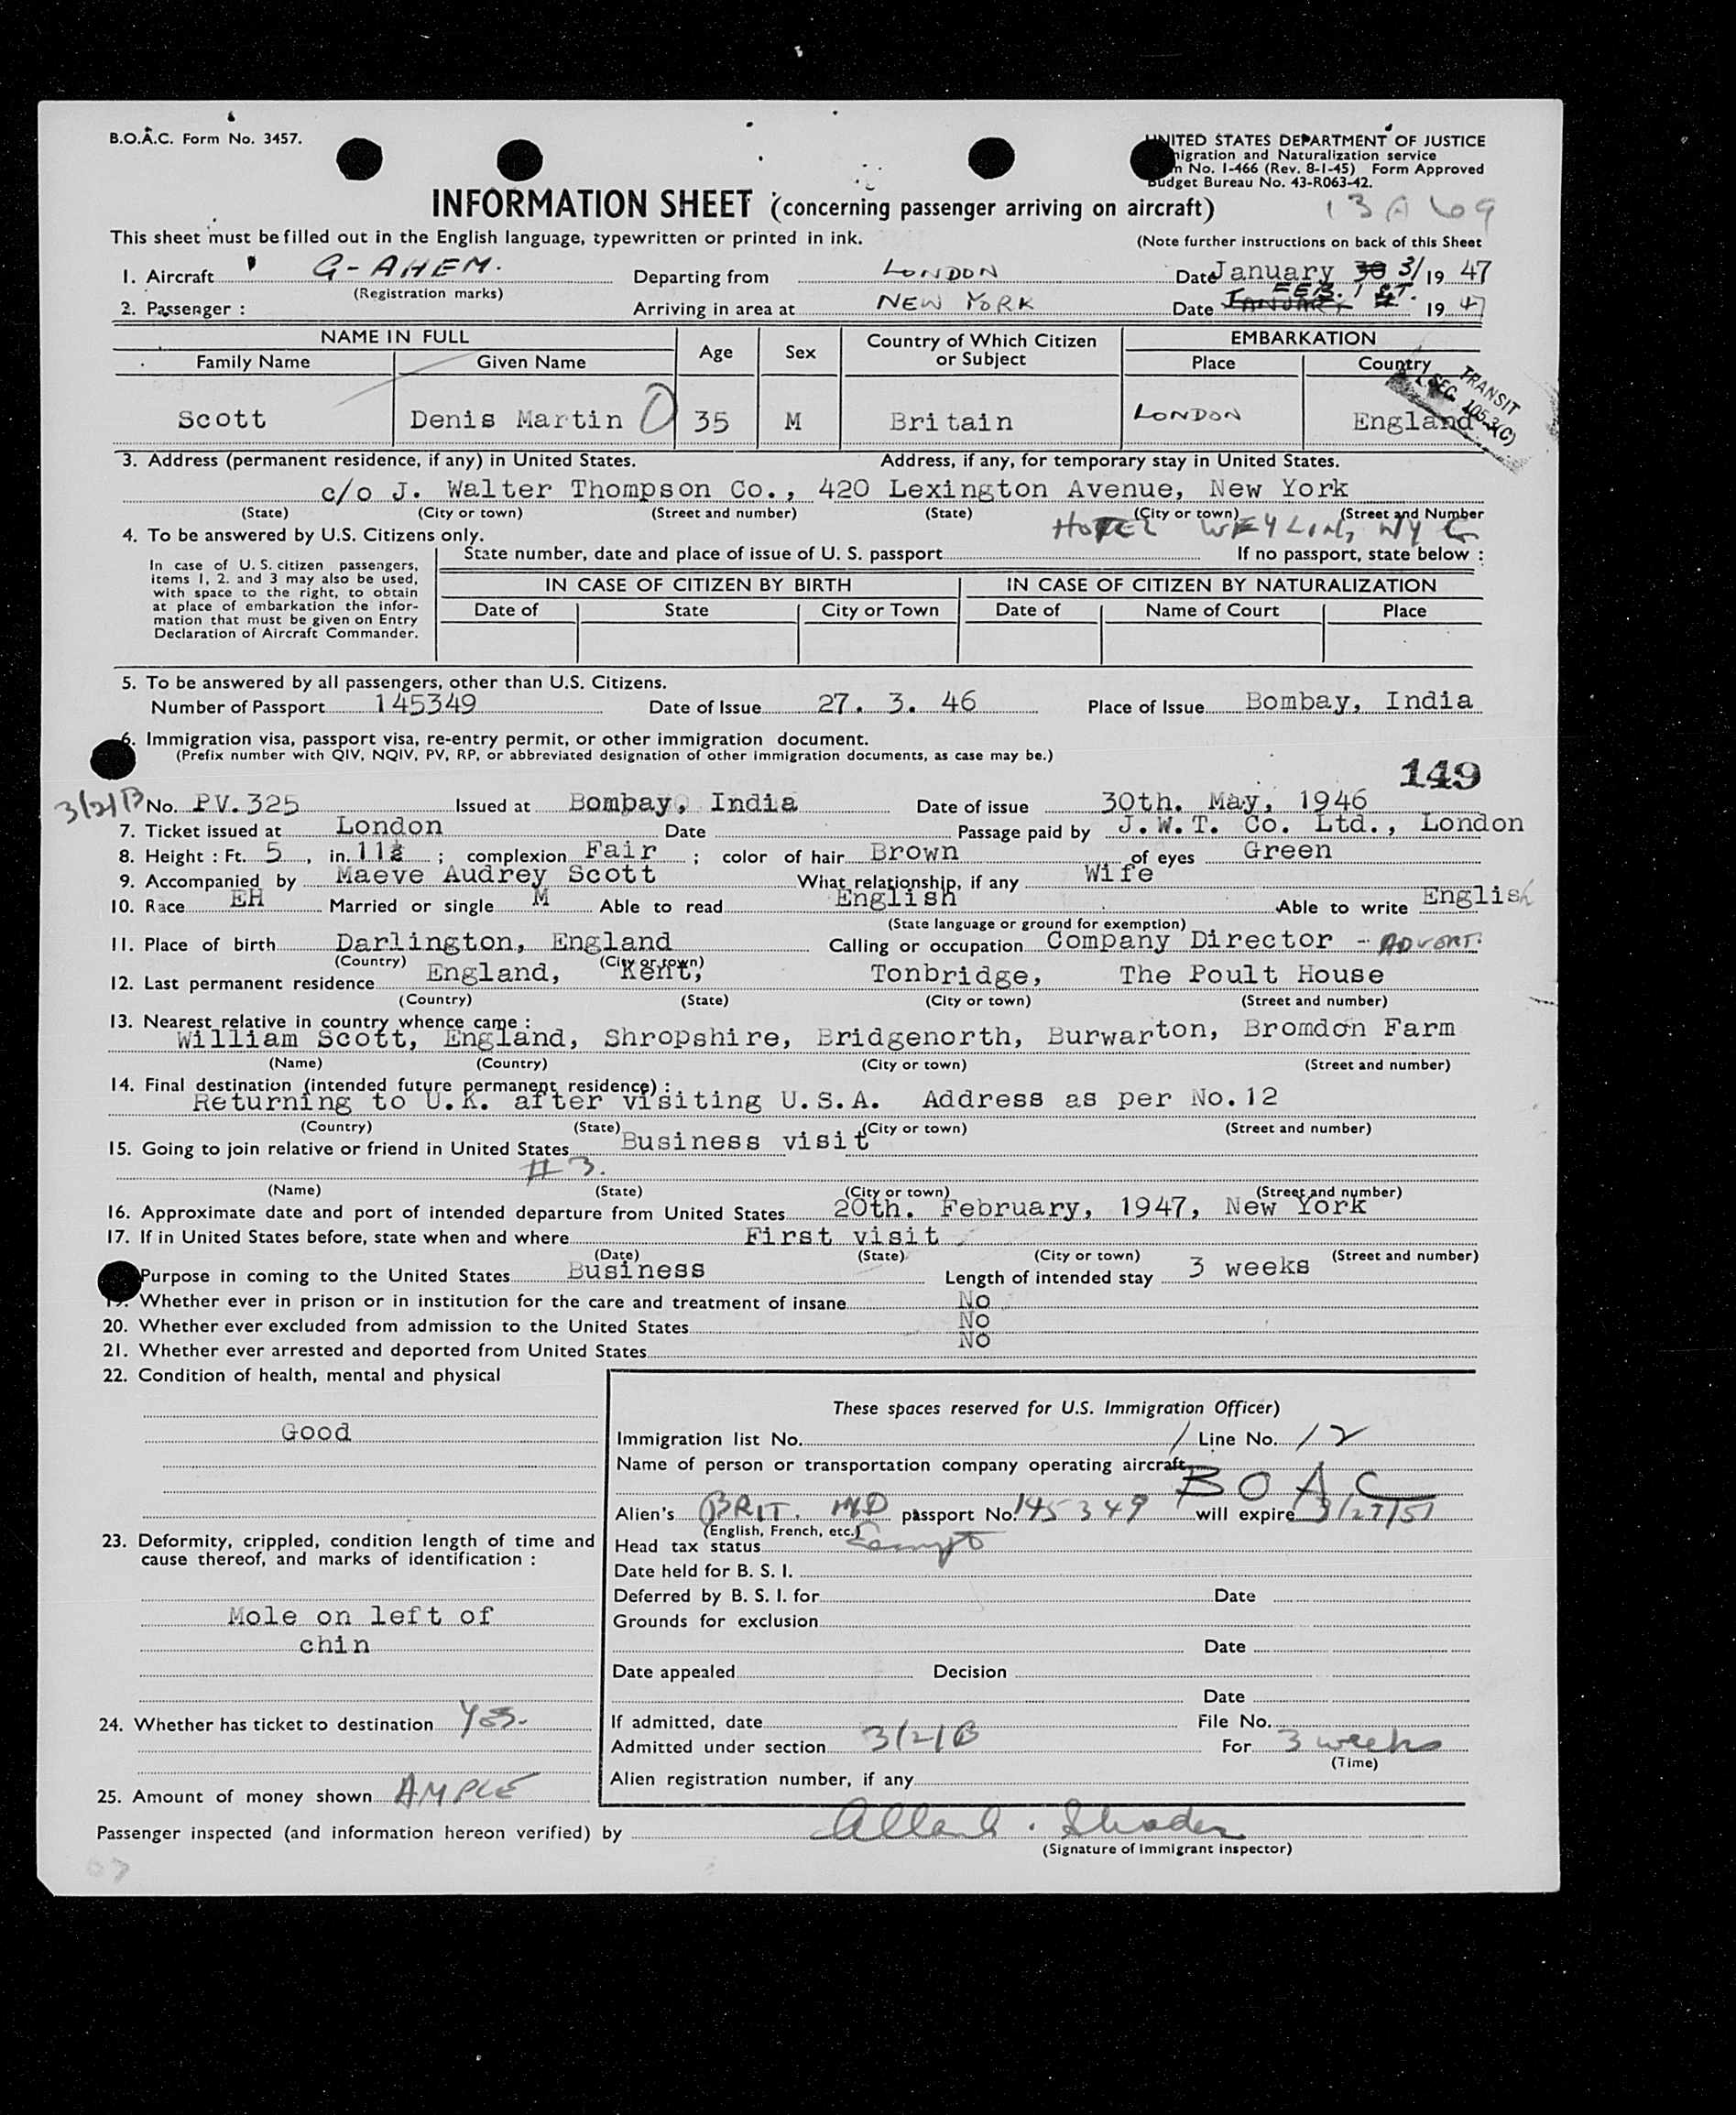 B.O.A.C. Form No. 3457.
UNITED STATES DEPARTMENT OF JUSTICE
Immigration and Naturalization service
No. I-466 (Rev. 8-1-45) Form Approved
Budget Bureau No. 43-R063-42.
INFORMATION SHEET (concerning passenger arriving on aircraft)
13 A 69
This sheet must be filled out in the English language, typewritten or printed in ink.
(Note further instructions on back of this Sheet
1. Aircraft G-AHEM. Departing from LONDON Date January 30 31 19 47
(Registration marks)
2. Passenger : Arriving in area at NEW YORK Date January FEB. 1 ST. 19 47
NAME IN FULL Age Sex Country of Which Citizen or Subject EMBARKATION
Family Name Given Name Place Country
TRANSIT
SEC. 105.3(C)
Scott Denis Martin 35 M Britain LONDON England
3. Address (permanent residence, if any) in United States. Address, if any, for temporary stay in United States.
c/o J. Walter Thompson Co., 420 Lexington Avenue, New York
(State) (City or town) (Street and number) (State) (City or town) (Street and Number
HOTEL WEYLIN, NYC
4. To be answered by U.S. Citizens only.
In case of U. S. citizen passengers, items 1, 2. and 3 may also be used, with space to the right, to obtain at place of embarkation the infor-
mation that must be given on Entry Declaration of Aircraft Commander.
State number, date and place of issue of U. S. passport If no passport, state below :
IN CASE OF CITIZEN BY BIRTH IN CASE OF CITIZEN BY NATURALIZATION
Date of State City or Town Date of Name of Court Place
5. To be answered by all passengers, other than U.S. Citizens.
Number of Passport 145349 Date of Issue 27. 3. 46 Place of Issue Bombay, India
6. Immigration visa, passport visa, re-entry permit, or other immigration document.
(Prefix number with QIV, NQIV, PV, RP, or abbreviated designation of other immigration documents, as case may be.)
149
3/2/B No. PV. 325 Issued at Bombay, India Date of issue 30th. May, 1946
7. Ticket issued at London Date Passage paid by J.W.T. Co. Ltd., London
8. Height : Ft. 5 , in. 11½ ; complexion Fair ; color of hair Brown of eyes Green
9. Accompanied by Maeve Audrey Scott What relationship, if any Wife
10. Race EH Married or single M Able to read English Able to write English
(State language or ground for exemption)
11. Place of birth Darlington, England Calling or occupation Company Director - ADVERT.
(Country) (City or town)
12. Last permanent residence England, Kent, Tonbridge, The Poult House
(Country) (State) (City or town) (Street and number)
13. Nearest relative in country whence came :
William Scott, England, Shropshire, Bridgenorth, Burwarton, Bromdon Farm
(Name) (Country) (City or town) (Street and number)
14. Final destination (intended future permanent residence) :
Returning to U.K. after visiting U.S.A. Address as per No.12
(Country) (State) (City or town) (Street and number)
15. Going to join relative or friend in United States Business visit
# 3.
(Name) (State) (City or town) (Street and number)
16. Approximate date and port of intended departure from United States 20th. February, 1947, New York
17. If in United States before, state when and where First visit
(Date) (State) (City or town) (Street and number)
Purpose in coming to the United States Business Length of intended stay 3 weeks
19. Whether ever in prison or in institution for the care and treatment of insane No
20. Whether ever excluded from admission to the United States No
21. Whether ever arrested and deported from United States No
22. Condition of health, mental and physical
Good
23. Deformity, crippled, condition length of time and cause thereof, and marks of identification :
Mole on left of
chin
24. Whether has ticket to destination Yes.
25. Amount of money shown AMPLE
These spaces reserved for U.S. Immigration Officer)
Immigration list No. 1 Line No. 12
Name of person or transportation company operating aircraft
BOAC
Alien's BRIT. IND passport No. 145349 will expire 3/27/51
(English, French, etc.)
Head tax status Exempt
Date held for B. S. I.
Deferred by B. S. I. for Date
Grounds for exclusion
Date
Date appealed Decision
Date
If admitted, date File No.
Admitted under section 3/2/B For 3 weeks
(Time)
Alien registration number, if any
Passenger inspected (and information hereon verified) by
(Signature of Immigrant Inspector)